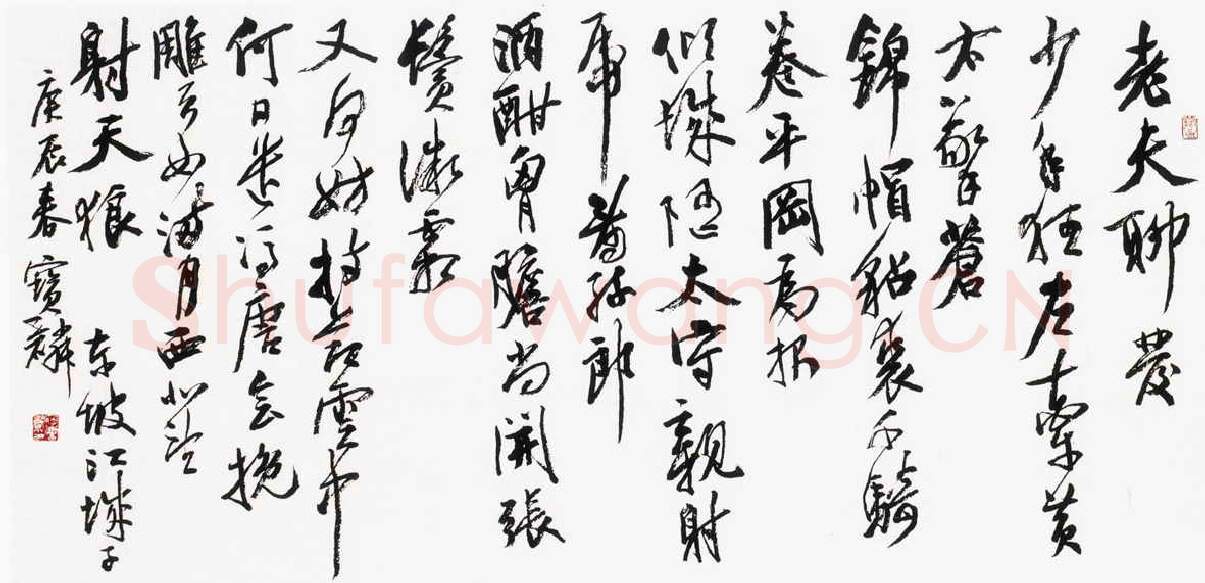 老夫聊發
少年狂左牽黃
右擎蒼
錦帽貂裘千騎
卷平岡為報
傾城隨太守親射
虎看孫郎
酒酣胸膽尚開張
鬢微霜
又何妨持節雲中
何日遣馮唐會挽
雕弓如滿月西北望
射天狼 東坡江城子
庚辰春寶麟
Shufawang.CN